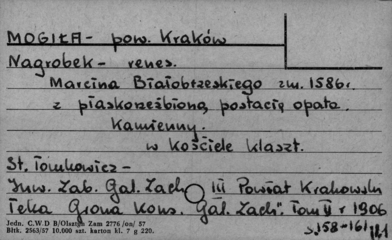 MOGIŁA - pow. Kraków
Nagrobek - renes.
Marcina Białobrzeskiego zm. 1586 r.
z płaskorzeźbioną postacią opata.
Kamienny.
w kościele klaszt.
St. Tomkowicz -
Inw. Zab. Gal. Zach. III Powiat Krakowski
Teka Grona Kons. Gal. Zach. Tom II r 1906
s. 158-161
Jedn. C.W.D B/Olsztyn Zam 2776/on/57
Bltk. 2563/57 10.000 szt. karton kl. 7 g 220.